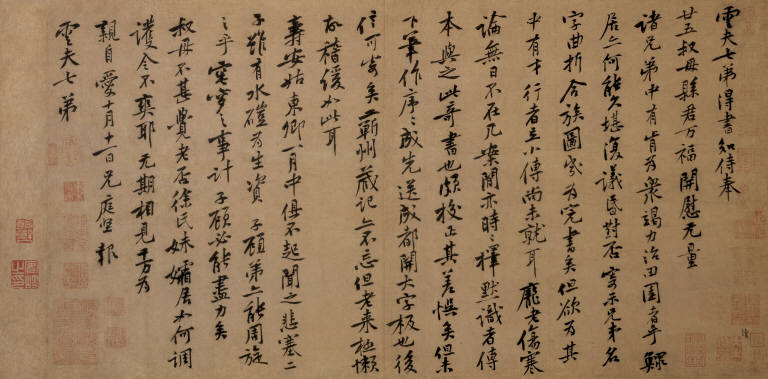 雲夫七弟得書知侍奉
廿五叔母縣君万福開慰无量
諸兄弟中有肯為衆竭力治田園者乎鰥
居亦何能久堪復議昏對否寄示兄弟名
字曲折合族圖為完書矣但欲為其
中有才行者立小傳尚未就耳龐老傷寒
論無日不在几案間亦時時擇默識者傳
本與之此奇書也頗校正其差悞矣但未
下筆作序序成先送成都開大字板也後
信可寄矣蘄州藏記亦不忘但老来極懶
故稽緩如此耳
壽安姑東卿一月中俱不起聞之悲塞二
子雖有水磑為生資子顧弟亦能周旋
之乎窀穸之事計子顧必能盡力矣
叔母不甚覺老否徐氏妹孀居如何調
護令不爽耶无期相見千万為
親自愛十月十一日兄庭堅報
雲夫七弟